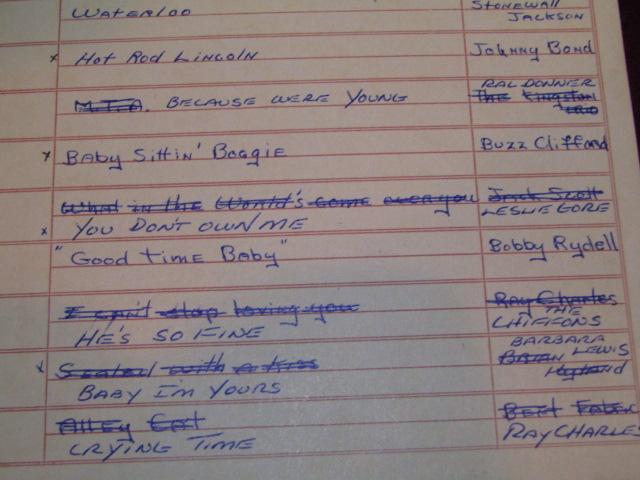 WATERLOO STONEWALL
JACKSON
x Hot Rod Lincoln Johnny Bond
RAL DONNER
M.T.A. BECAUSE WERE YOUNG The Kingston
trio
x Baby Sittin' Boogie Buzz Clifford
What in the World's come over you Jack Scott
x YOU DON'T OWN ME LESLIE GORE
"Good time Baby" Bobby Rydell
I can't stop loving you Ray Charles
THE
HE'S SO FINE CHIFFONS
BARBARA
x Sealed with a kiss BRIAN LEWIS
Hyland
BABY I'M YOURS
Alley Cat Bert Faber
CRYING TIME RAY CHARLES